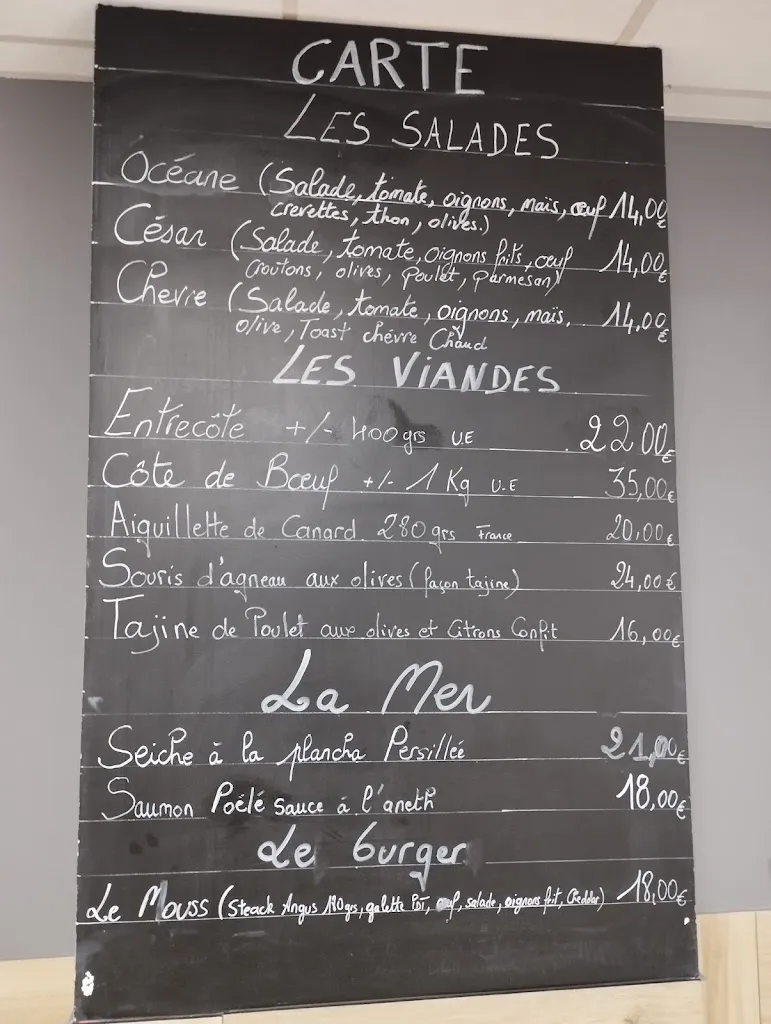 CARTE
LES SALADES
Océane (Salade, tomate, oignons, maïs, œuf 14,00€
crevettes, thon, olives.)
César (Salade, tomate, oignons frits, œuf 14,00€
croutons, olives, poulet, parmesan)
Chevre (Salade, tomate, oignons, maïs, 14,00€
olive, Toast chévre Chaud
LES VIANDES
Entrecôte +/- 400grs U.E 22.00€
Côte de Bœuf +/- 1 Kg U.E 35,00€
Aiguillette de Canard 280grs France 20,00€
Souris d'agneau aux olives (façon tajine) 24,00€
Tajine de Poulet aux olives et Citrons Confit 16,00€
La Mer
Seiche à la plancha Persillée 21,00€
Saumon Poêlé sauce à l'aneth 18,00€
Le burger
Le Mouss (Steack Angus grs, galette PDT, œuf, salade, oignons frit, Cheddar) 18,00€